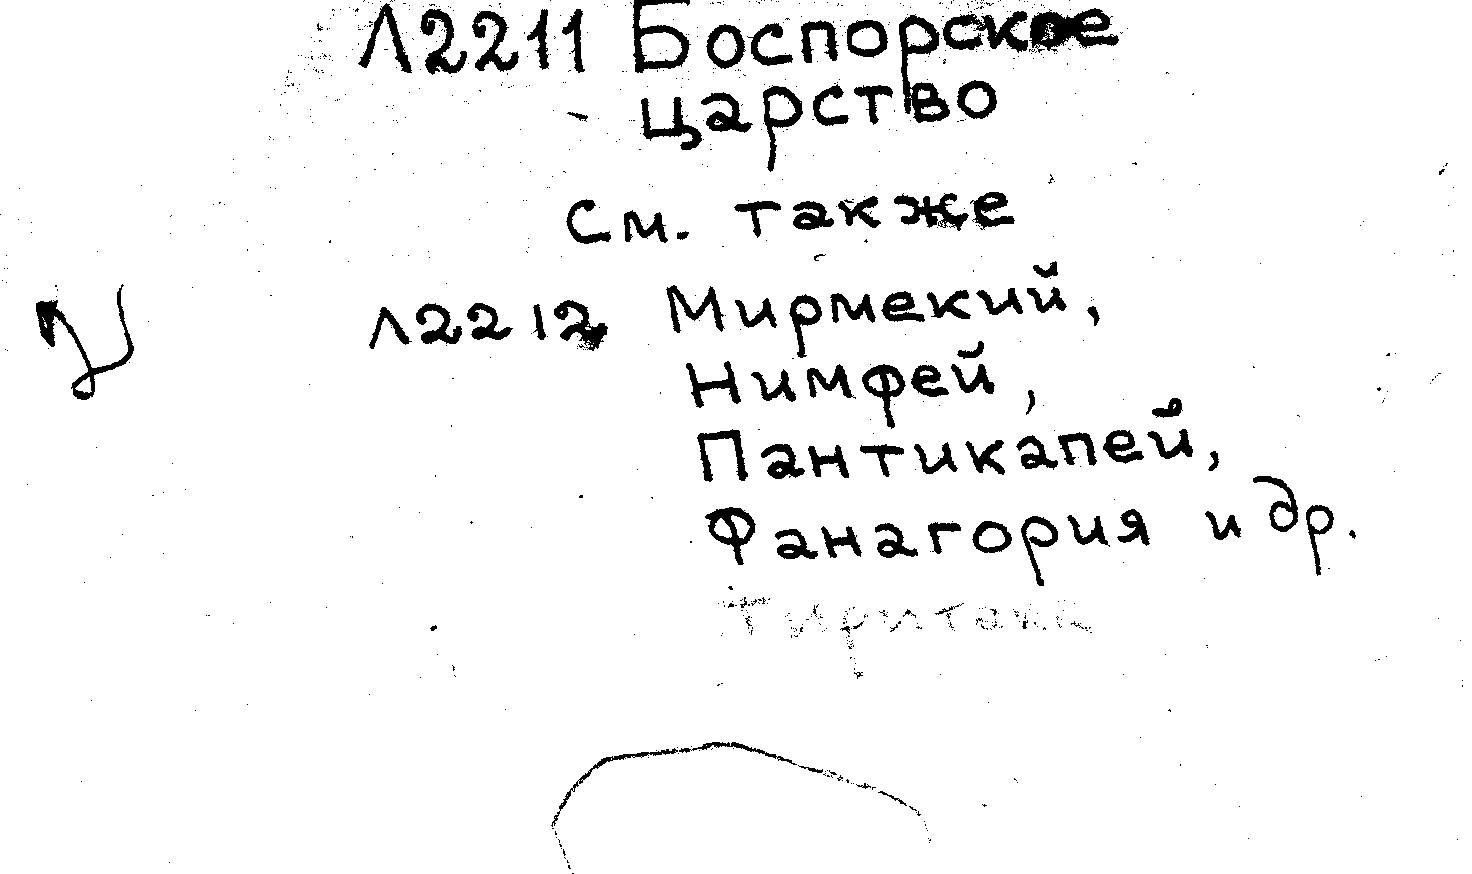 Л2211 Боспорское
царство
См. также
Л2212 Мирмекий,
Нимфей,
Пантикапей,
Фанагория и др.
Тиритака